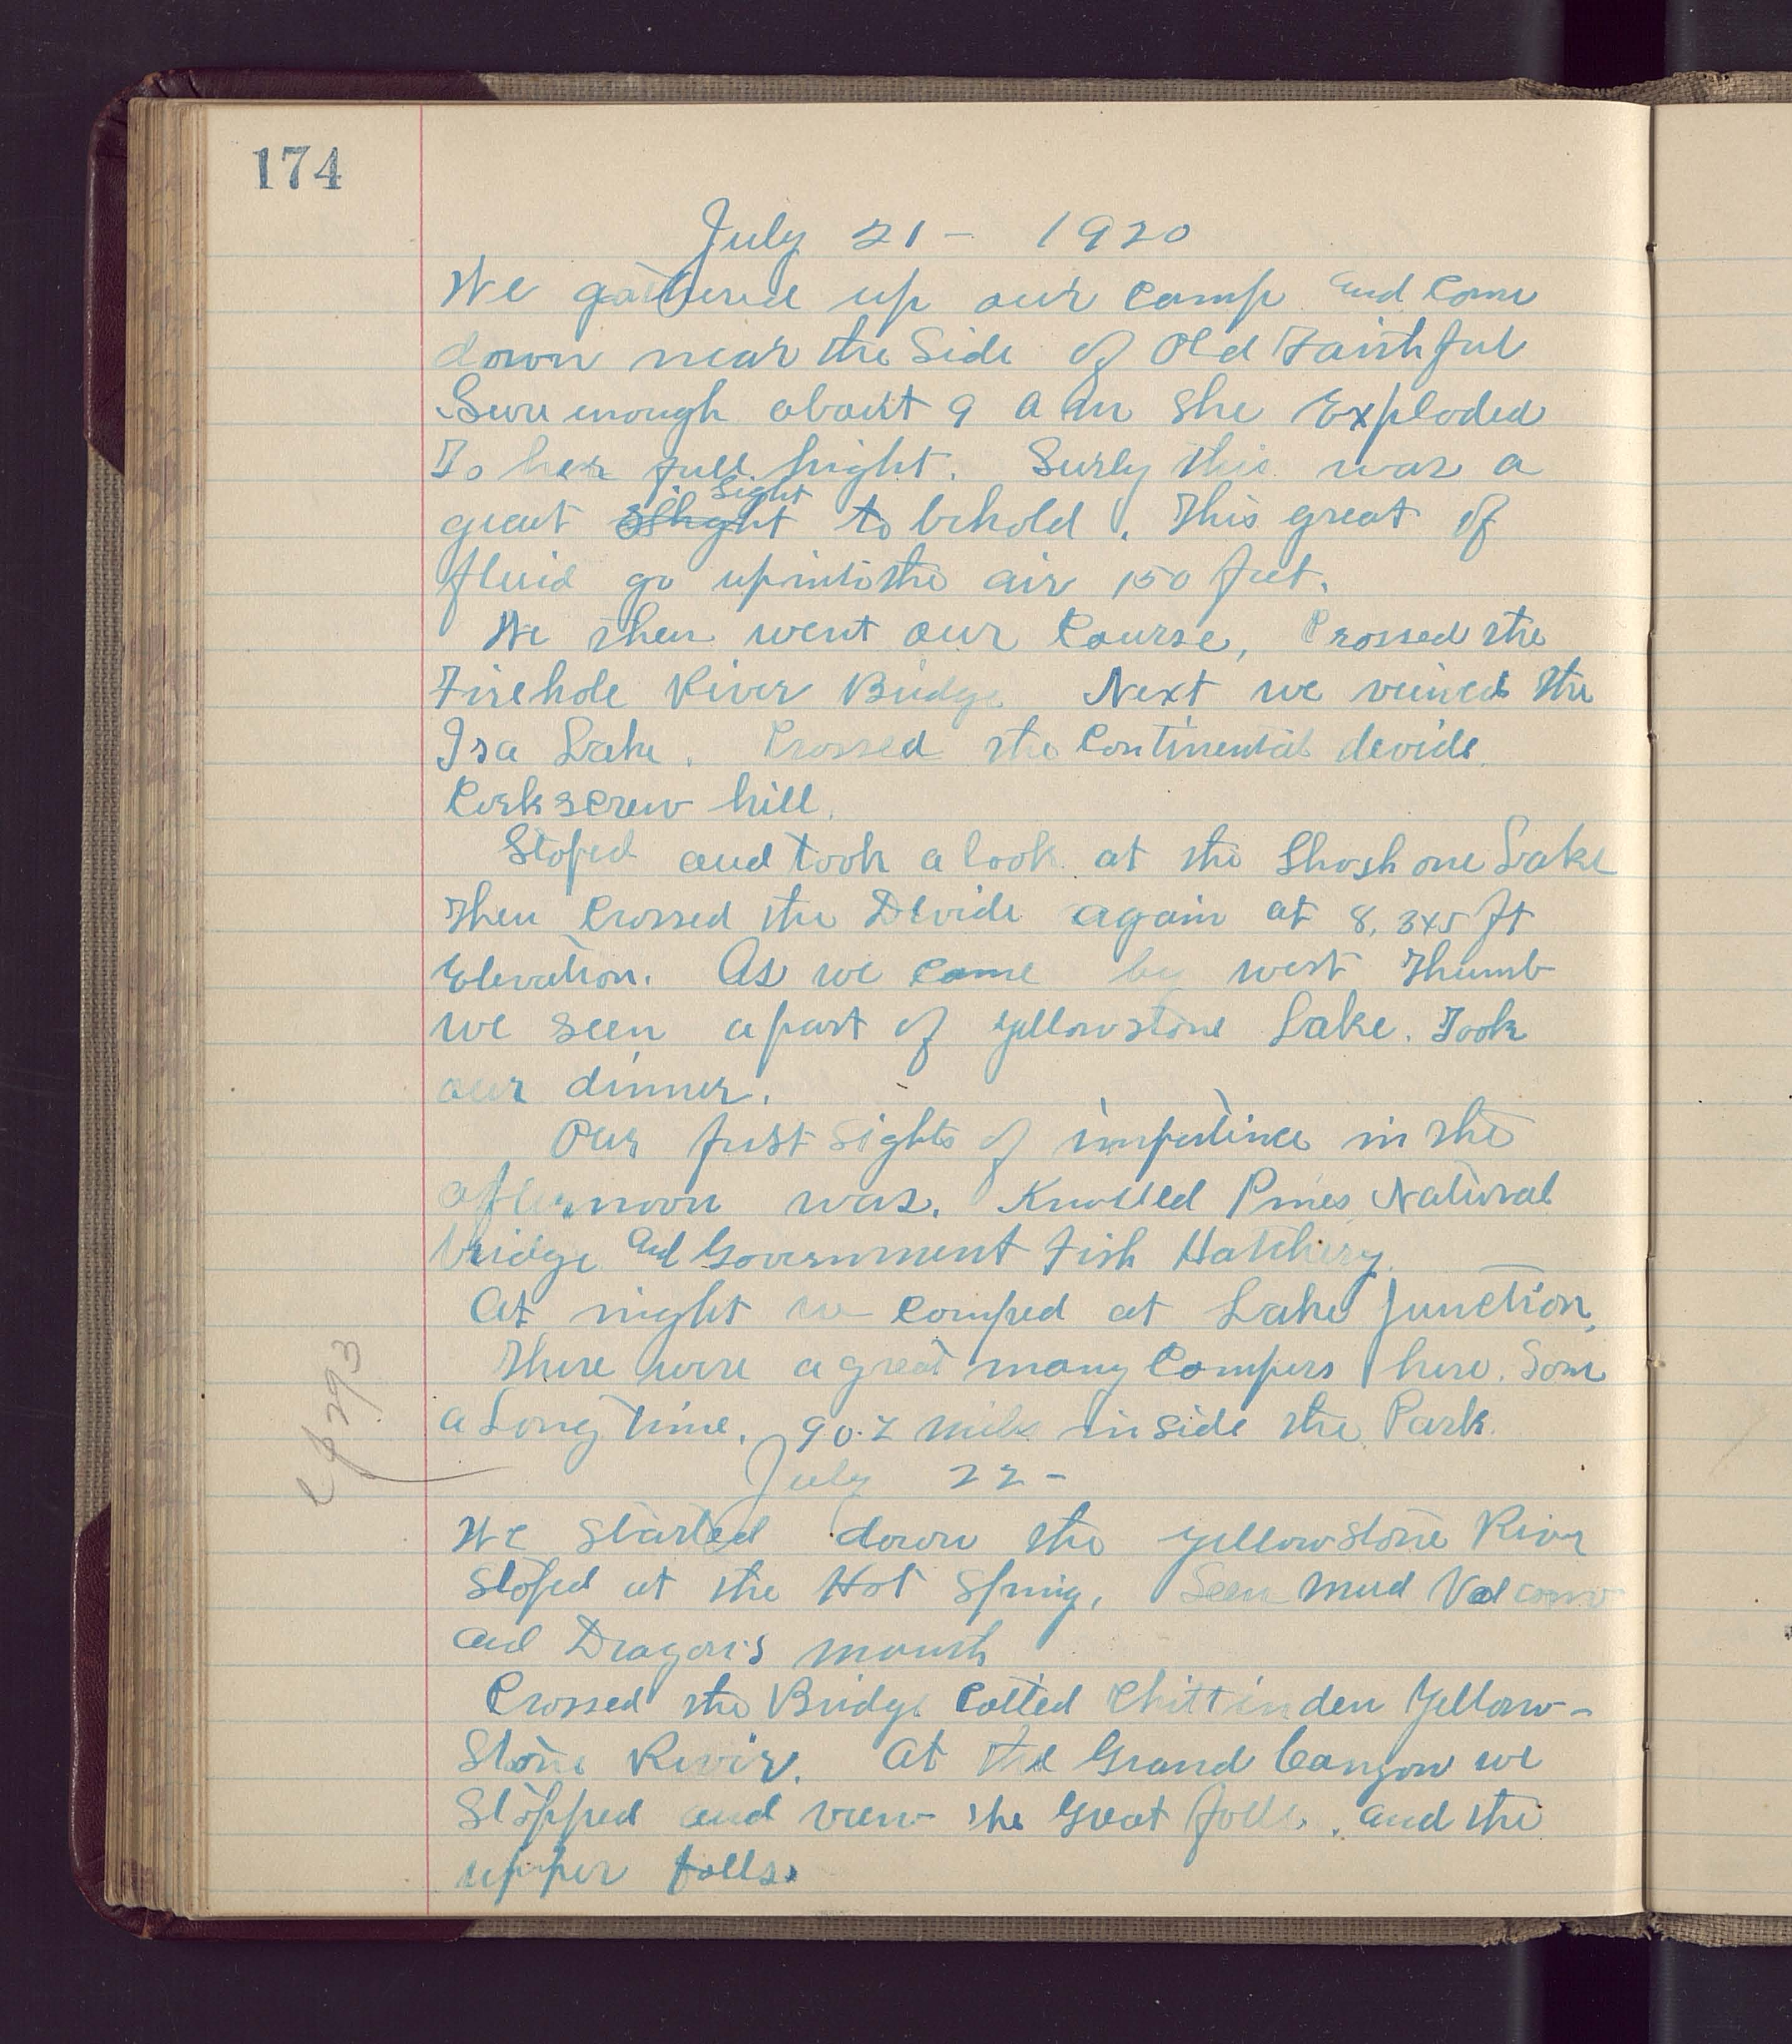 174
July 21 - 1920
We gathered up our camp and come
down near the Side of Old Faithful
Sure enough about 9 a m she Exploded
To her full hight. Surly this was a
great slhight Sight to behold. This great of
fluid go up into the air 150 feet.
We then went our Course, Crossed the
Firehole River Bridge Next we veiwed the
Isa Lake. Crossed the Continental devide.
Corkscrew hill.
Stoped and took a look at the Shoshone Lake
Then Crossed the Devide again at 8,345 ft
Elevation. As we came by west Thumb
we seen a part of yellowstone Lake. Took
our dinner.
Our first sights of in the
afternoon was. Knotted Pines Natural
bridge and Government Fish Hatchery.
At night we Camped at Lake Junction.
There were a great many Campers here. Som
a Long time. 90.7 miles inside the Park.
July 22 -
We started down the yellowstone River
stoped at the Hot Spring. Seen mud Volcano
and Dragon's mouth
Crossed the Bridge Called Chittinden Yellow-
stone River. At the Grand Canyon we
Stopped and view the Great falls. and the
upper falls.
293